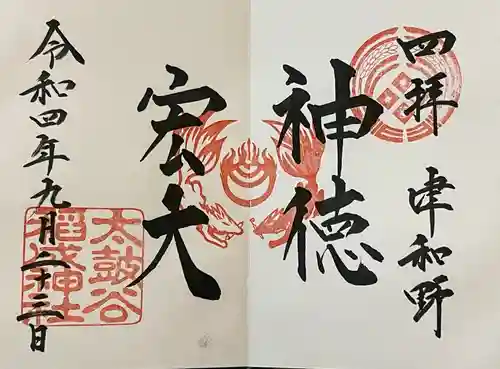 四拝
津和野
神徳
宏大
令和四年九月二十三日
太皷谷
稲成神社